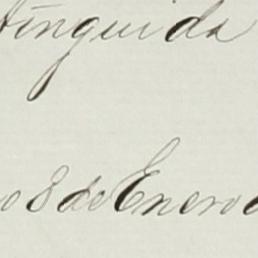 tinguida
o 8 de Enero d